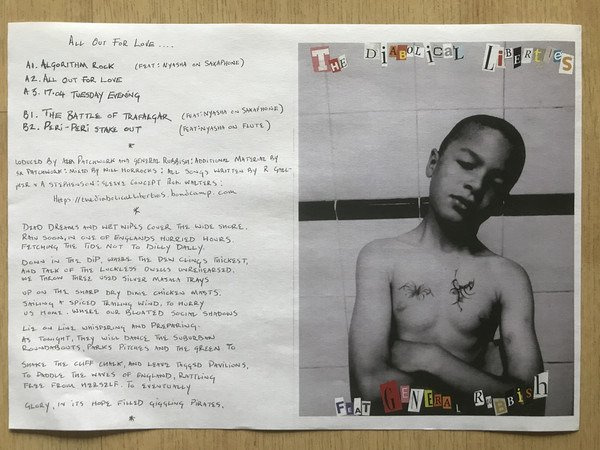 ALL OUT FOR LOVE....
A1. ALGORITHM ROCK (FEAT: NYASHA ON SAXAPHONE)
A2. ALL OUT FOR LOVE
A3. 17.04 TUESDAY EVENING
B1. THE BATTLE OF TRAFALGAR (FEAT: NYASHA ON SAXAPHONE)
B2. PERI-PERI STAKE OUT (FEAT: NYASHA ON FLUTE)
*
PATCHWORK AND GENERAL RUBBISH: ADDITIONAL MATERIAL BY
PATCHWORK: MIXED BY NILL HORROCKS: ALL SONGS WRITTEN BY R
& A STEPHENSON: SLEEVE CONCEPT WALTERS:
https://thediabolicalliberties.bandcamp.com
*
DEAD DREAMS AND WET WIPES COVER THE WIDE SHORE.
RAW SOON, IN ONE OF ENGLANDS HURRIED HOURS.
FETCHING THE TIDE NOT TO DILLY DALLY.
DOWN IN THE DIP, WHERE THE DEW CLINGS THICKEST,
AND TALK OF THE LUCKLESS DWELLS UNREHEARSED,
WE THROW THREE USED SILVER MASALA TRAYS
UP ON THE SHARP DRY DIXIE CHICKEN MASTS.
SAILING A SPICED TRAILING WIND, TO HURRY
US HOME. WHERE OUR BLOATED SOCIAL SHADOWS
LIE ON LINE WHISPERING AND PREPARING.
AS TONIGHT, THEY WILL DANCE THE SUBURBAN
ROUNDABOUTS, PARKS PITCHES AND THE GREEN TO
SHAKE THE CLIFF CHALK, AND LEAVE JAGGED PAVILIONS,
TO PADDLE THE WAVES OF ENGLAND, RATTLING
FREE FROM HERSELF. TO EVENTUALLY
GLORY, IN ITS HOPE FILLED GIGGLING PIRATES.
*
THE DIABOLICAL LIBERTIES
FEAT GENERAL RUBBISH